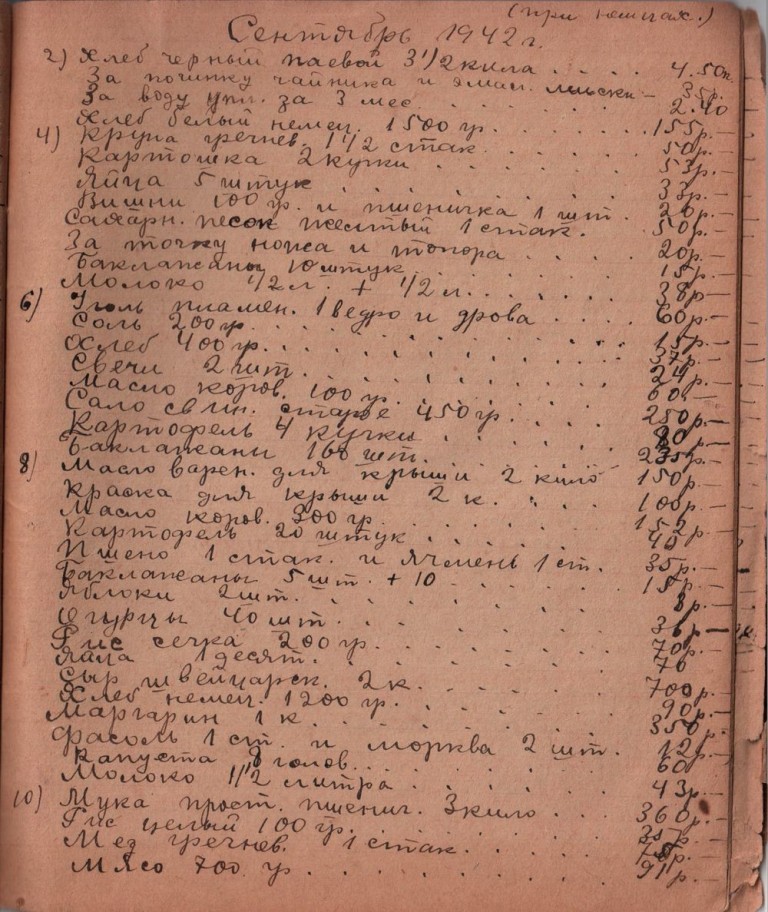 (при немцах.)
Сентябрь 1942 г.
2) Хлеб черный паевой 3 1/2 кила . . . . 4.50к.
За починку чайника и эмал. миски — 35р.
За воду упл. за 3 мес . . . . . . 2.40
Хлеб белый немец. 1500 гр. . . . . 155р.—
4) Крупа гречнев. 1 1/2 стак. . . . . 50р.—
Картошка 2 кучки . . . . . . 53р.—
Яйца 5 штук . . . . . . 33р.—
Вишни 100 гр. и пшеничка 1 шт. 20р.—
Сахарн. песок желтый 1 стак. 50р.—
За точку ножа и топора . . . . 20р.—
Баклажаны 10 штук . . . . . 15р.—
Молоко 1/2 л. + 1/2 л. . . . . . 38р—
6) Уголь пламен. 1 ведро и дрова . . . . 60р.—
Соль 200 гр. . . . . . . 15р.—
Хлеб 400 гр. . . . . . . 37р.—
Свечи 2 шт. . . . . . . 24р.—
Масло коров. 100 гр. . . . . . 60.—
Сало свин. старое 450 гр. . . . . 250р.—
Картофель 4 кучки . . . . . 80р—
Баклажаны 160 шт. . . . . . 235р—
8) Масло варен. для крыши 2 кило 150р.
Краска для крыши 2 к. . . . 100р.
Масло коров. 300 гр. . . . . 152р.
Картофель 20 штук . . . . 40
Пшено 1 стак. и ячмень 1 ст. 35р.—
Баклажаны 5 шт. + 10 . . . . 15р.—
Яблоки 2 шт. . . . . . 8р.—
Огурцы 40 шт. . . . . . 36р—
Рис сечка 200 гр. . . . . 70р.—
Яйца 1 десят. . . . . . 70
Сыр швейцарск. 2 к. . . . . 700р.
Хлеб немец. 1200 гр. . . . . 90р.—
Маргарин 1 к. . . . . . 350р.
Фасоль 1 ст. и морква 2 шт. . 12р.—
Капуста 8 голов . . . . . 60
Молоко 1 1/2 литра . . . . . 43р.
10) Мука прост. пшенич. 3 кило . . . 360р.
Рис целый 100 гр. . . . . . 35р.
Мез гречнев. 1 стак. . . . .
Мясо 700 гр . . . . . . 91р.